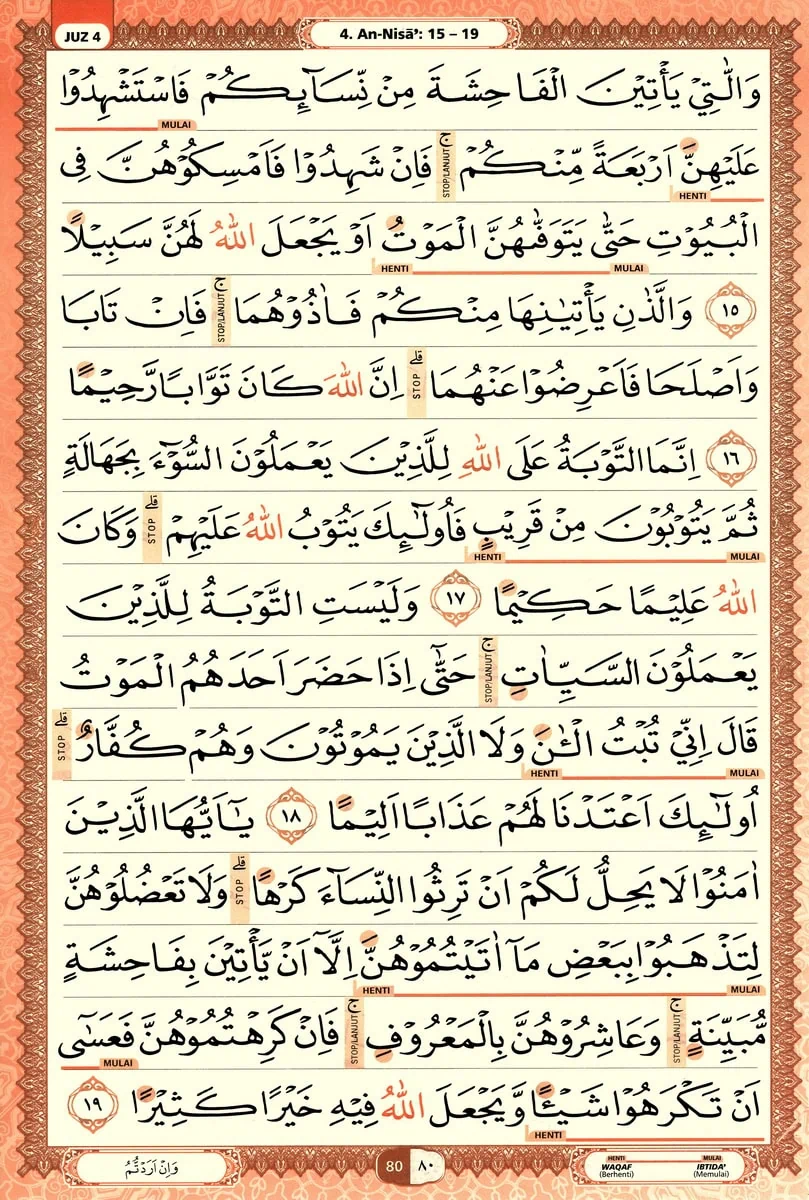 JUZ 4
4. An-Nisā’: 15 – 19
وَالّٰتِيْ يَأْتِيْنَ الْفَاحِشَةَ مِنْ نِّسَاۤىِٕكُمْ فَاسْتَشْهِدُوْا
MULAI
عَلَيْهِنَّ اَرْبَعَةً مِّنْكُمْ ۚ فَاِنْ شَهِدُوْا فَاَمْسِكُوْهُنَّ فِى
STOP/LANJUT
HENTI
الْبُيُوْتِ حَتّٰى يَتَوَفّٰىهُنَّ الْمَوْتُ اَوْ يَجْعَلَ اللّٰهُ لَهُنَّ سَبِيْلًا
MULAI HENTI
١٥ وَالَّذٰنِ يَأْتِيٰنِهَا مِنْكُمْ فَاٰذُوْهُمَا ۚ فَاِنْ تَابَا
STOP/LANJUT
وَاَصْلَحَا فَاَعْرِضُوْا عَنْهُمَا ۗ اِنَّ اللّٰهَ كَانَ تَوَّابًا رَّحِيْمًا
STOP
١٦ اِنَّمَا التَّوْبَةُ عَلَى اللّٰهِ لِلَّذِيْنَ يَعْمَلُوْنَ السُّوْۤءَ بِجَهَالَةٍ
ثُمَّ يَتُوْبُوْنَ مِنْ قَرِيْبٍ فَاُولٰۤىِٕكَ يَتُوْبُ اللّٰهُ عَلَيْهِمْ ۗ وَكَانَ
STOP
MULAI HENTI
اللّٰهُ عَلِيْمًا حَكِيْمًا ١٧ وَلَيْسَتِ التَّوْبَةُ لِلَّذِيْنَ
يَعْمَلُوْنَ السَّيِّاٰتِ ۚ حَتّٰىٓ اِذَا حَضَرَ اَحَدَهُمُ الْمَوْتُ
STOP/LANJUT
قَالَ اِنِّيْ تُبْتُ الْـٰٔنَ وَلَا الَّذِيْنَ يَمُوْتُوْنَ وَهُمْ كُفَّارٌ ۗ
STOP
MULAI HENTI
اُولٰۤىِٕكَ اَعْتَدْنَا لَهُمْ عَذَابًا اَلِيْمًا ١٨ يٰٓاَيُّهَا الَّذِيْنَ
اٰمَنُوْا لَا يَحِلُّ لَكُمْ اَنْ تَرِثُوا النِّسَاۤءَ كَرْهًا ۗ وَلَا تَعْضُلُوْهُنَّ
STOP
لِتَذْهَبُوْا بِبَعْضِ مَآ اٰتَيْتُمُوْهُنَّ اِلَّآ اَنْ يَّأْتِيْنَ بِفَاحِشَةٍ
MULAI HENTI
مُّبَيِّنَةٍ ۚ وَعَاشِرُوْهُنَّ بِالْمَعْرُوْفِ ۚ فَاِنْ كَرِهْتُمُوْهُنَّ فَعَسٰٓى
STOP/LANJUT STOP/LANJUT
MULAI
اَنْ تَكْرَهُوْا شَيْـًٔا وَّيَجْعَلَ اللّٰهُ فِيْهِ خَيْرًا كَثِيْرًا ١٩
HENTI
وَاِنْ اَرَدْتُّمُ
80 ٨٠
HENTI MULAI
WAQAF IBTIDA’
(Berhenti) (Memulai)